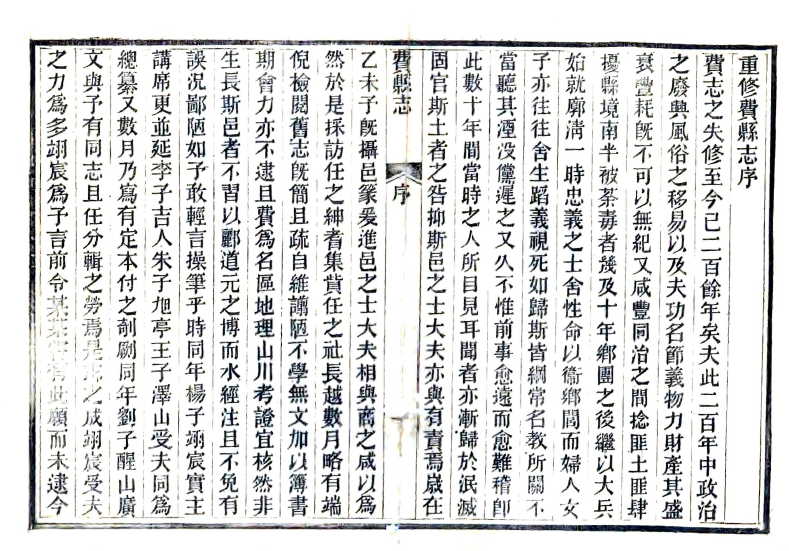 重修費縣志序
費志之失修至今已二百餘年矣夫此二百年中政治
之廢興風俗之移易以及夫功名節義物力財產其盛
衰豐耗旣不可以無紀又咸豐同治之間捻匪土匪肆
擾縣境南半被荼毒者幾及十年鄉團之後繼以大兵
始就廓清一時忠義之士舍性命以衞鄉閭而婦人女
子亦往往舍生蹈義視死如歸斯皆綱常名教所關不
當聽其湮沒儻遲之又久不惟前事愈遠而愈難稽卽
此數十年間當時之人所目見耳聞者亦漸歸於泯滅
固官斯土者之咎抑斯邑之士大夫亦與有責焉歲在
費縣志
序
乙未予旣攝邑篆爰進邑之士大夫相與商之咸以爲
然於是採訪任之紳耆集貲任之社長越數月略有端
倪檢閱舊志旣簡且疏自維譾陋不學無文加以簿書
期會力亦不逮且費爲名區地理山川考證宜核然非
生長斯邑者不習以酈道元之博而水經注且不免有
誤況鄙陋如予敢輕言操筆乎時同年楊子翊宸實主
講席更並延李子吉人朱子旭亭王子澤山受夫同爲
總纂又數月乃寫有定本付之剞劂同年劉子醒山廣
文與予有同志且任分輯之勞焉是之成翊宸受夫
之力爲多翊宸爲予言前令某有此願而未逮今